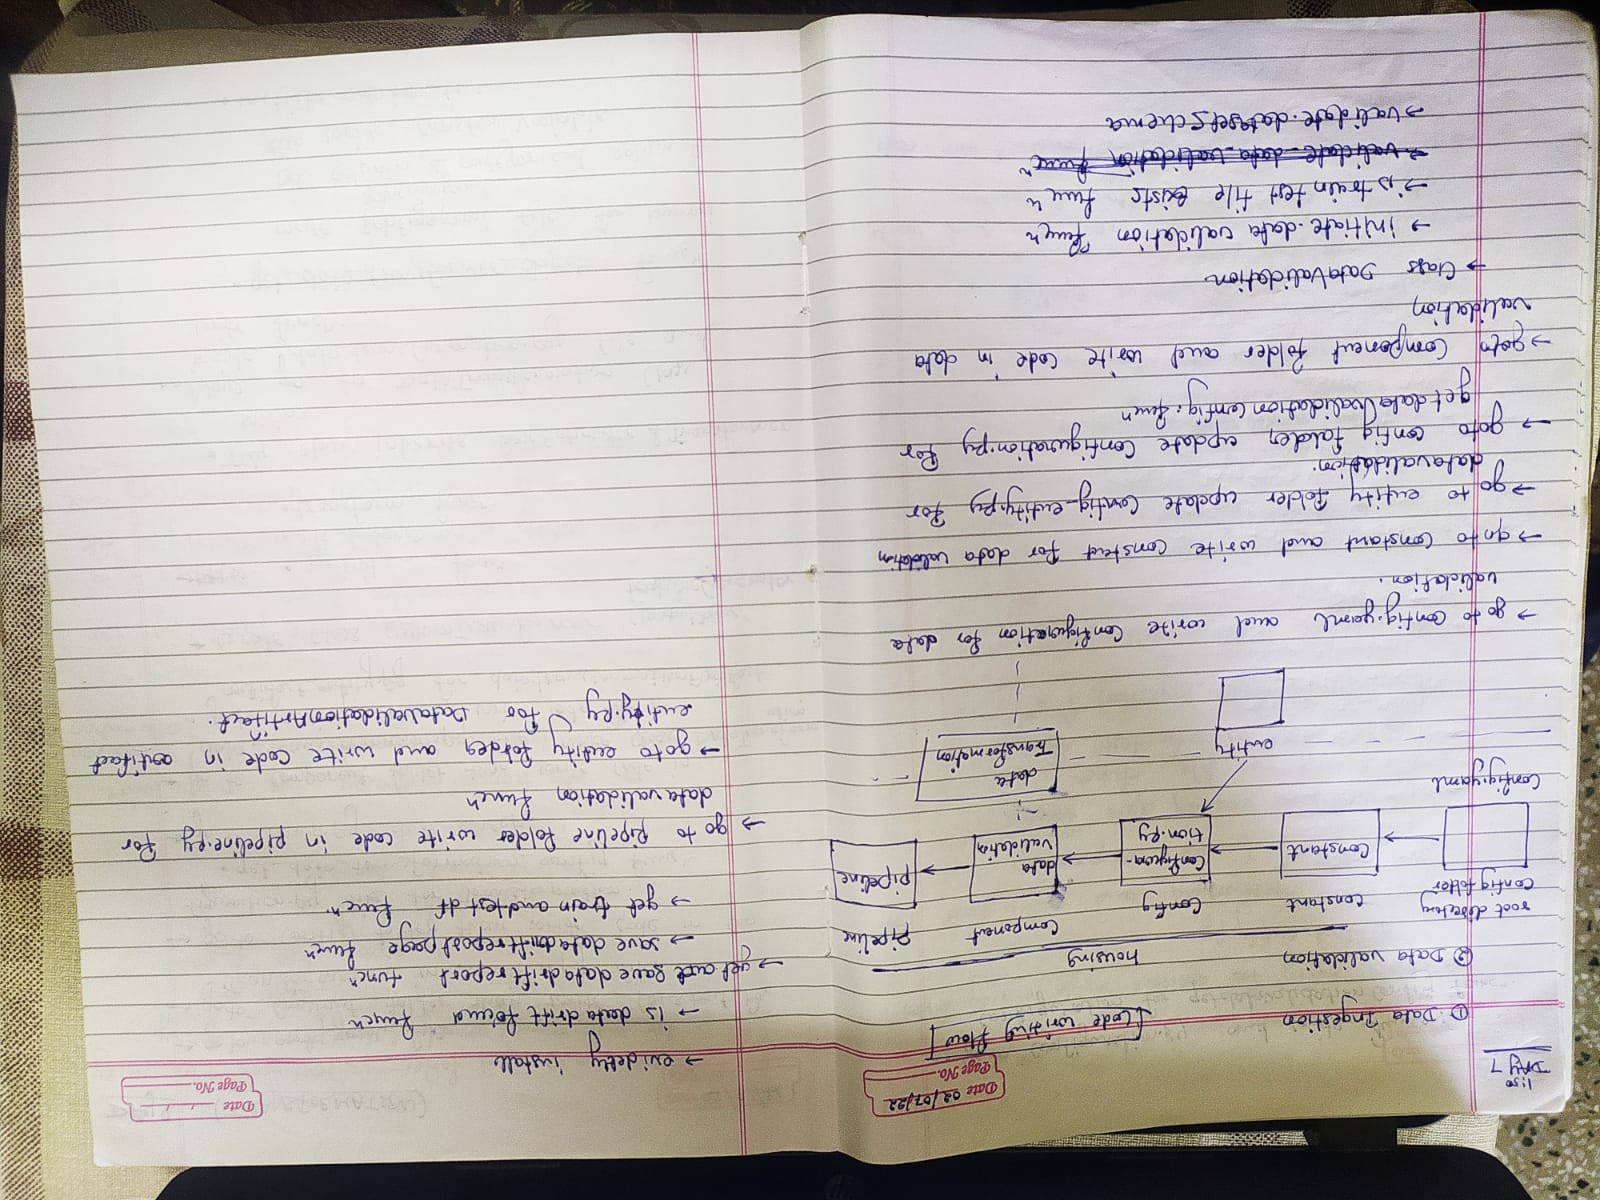 1:50
DAY 7
Date 02/07/22
Page No.
Code writing flow
① Data Ingestion
② Data validation
housing
root directory
config folder
constant
Config
Component
pipeline
Constant
Configura-
tion.py
data
validation
pipeline
Config.yaml
entity
data
Transformation
→ go to config.yaml and write Configuration for data
validation.
→ go to constant and write constant for data validation
→ go to entity folder update Config_entity.py for
datavalidation.
→ goto config folder update Configuration.py for
get data validation config. funcⁿ
→ goto Component folder and write code in data
validation
→ Class DataValidation
→ initiate.data validation funcⁿ
→ is train test file exists funcⁿ
→ validate_data_validation funcⁿ
→ validate.dataset schema
Date
Page No.
→ evidetly install
→ is data drift found funcⁿ
→ get and save datadrift report funcⁿ
→ save datadrift report page funcⁿ
→ get train and test df funcⁿ
→ go to pipeline folder write code in pipeline.py for
data validation funcⁿ
→ goto entity folder and write code in artifact
entity.py for DataValidationArtifact.